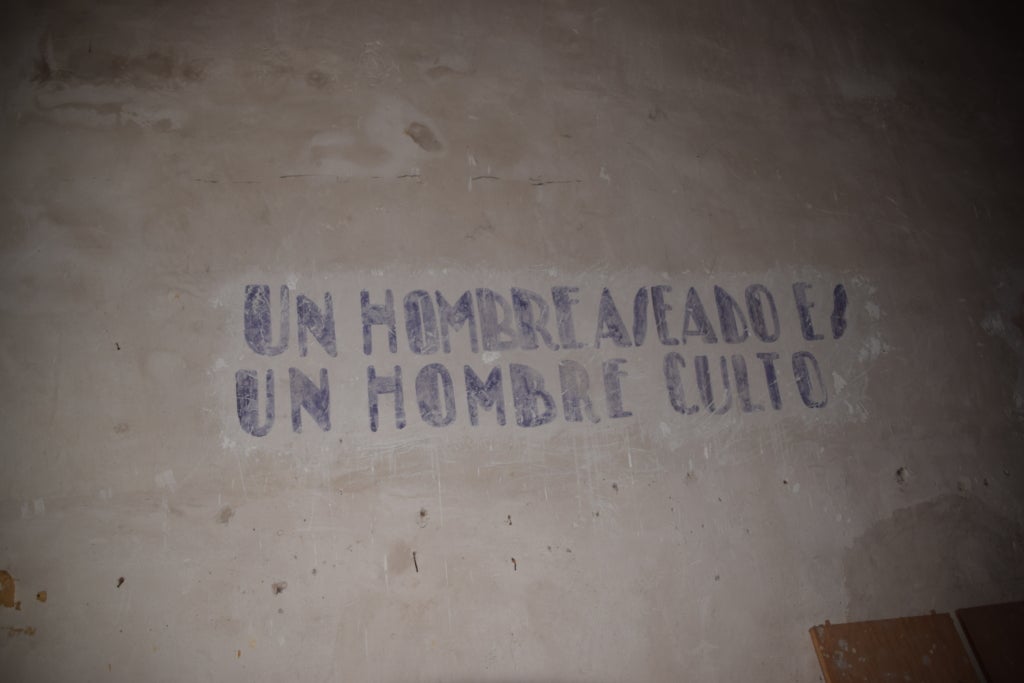 UN HOMBRE ASEADO ES
UN HOMBRE CULTO